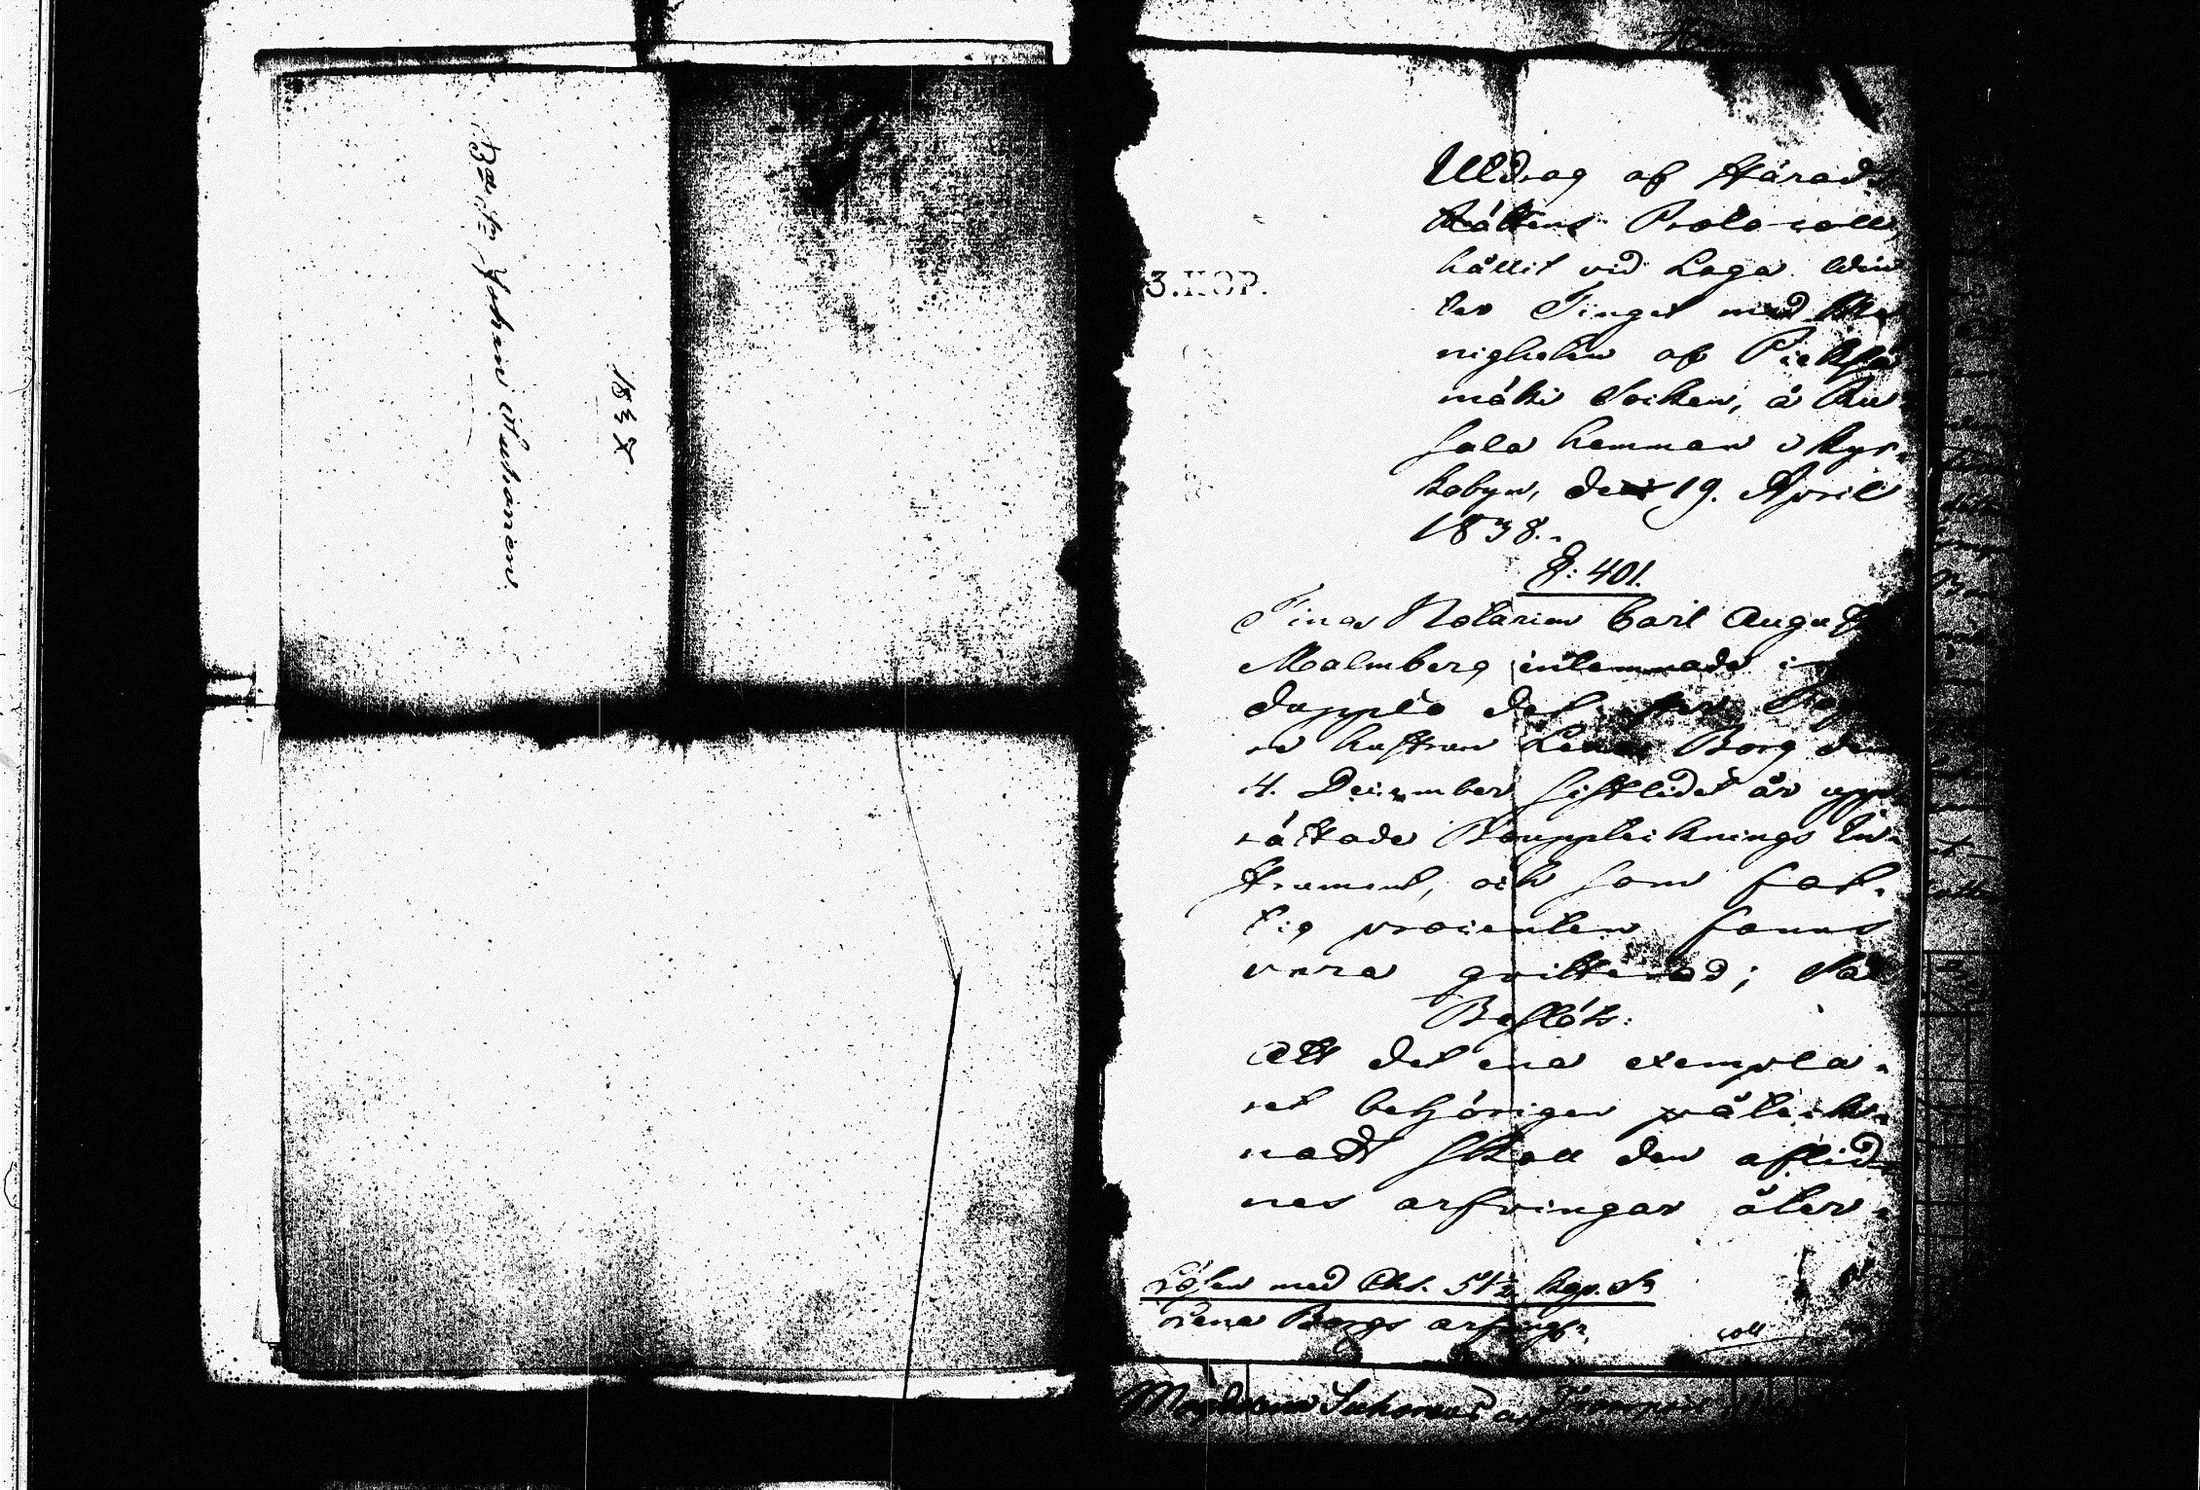 Bde: ten Johan Suhonen.
1837
3.KOP.
Utdrag af Härads
Rättens Protocoll,
hållit vid Laga Win
ter Tinget med Me
nigheten af Pieksä
mäki Socken, å Ru
hala hemman i Kyr=
kobyn, den 19. April
1838.
§: 401.
Vice Notarien Carl August
Malmberg inlemnade i
dupplo det efter
hustrun Lena Borg den
4. December sistlidet år upp
rättade Bouppteiknings In=
strument, och som fat=
tig procenten fanns
vara qvitterad; Så
Beslöts:
Att det ena exempla=
ret behörigen påteck=
nadt skall den aflid=
nes arfvingar åter=
Lösen med Chs. 51½ kop. Sr
Lena Borgs arfvingr.
coll
Magdalena Suhonen